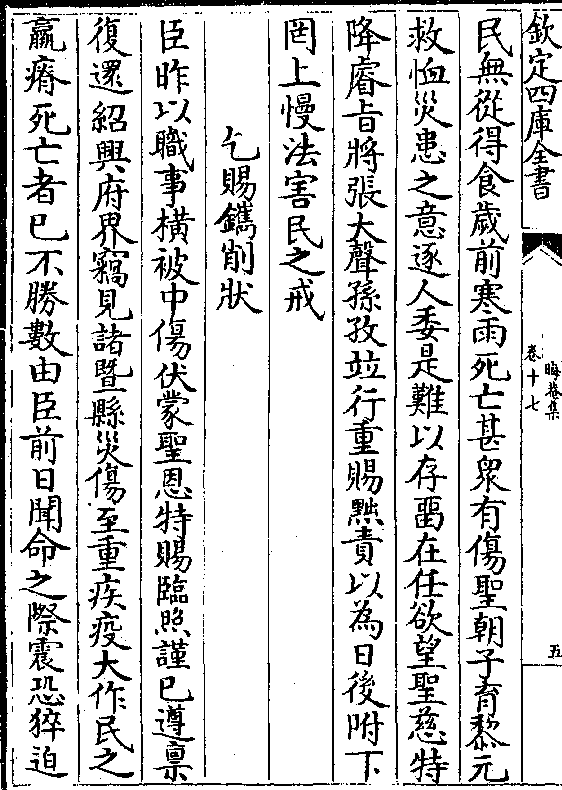 欽定四庫全書
晦菴集
卷十七
五
民無從得食歲前寒雨死亡甚衆有傷聖朝子育黎元
救恤災患之意逐人委是難以存畱在任欲望聖慈特
降睿旨將張大聲孫孜竝行重賜黜責以為日後附下
罔上慢法害民之戒
乞賜鐫削狀
臣昨以職事橫被中傷伏蒙聖恩特賜臨照謹已遵禀
復還紹興府界竊見諸暨縣災傷至重疾疫大作民之
羸瘠死亡者已不勝數由臣前日聞命之際震恐猝迫